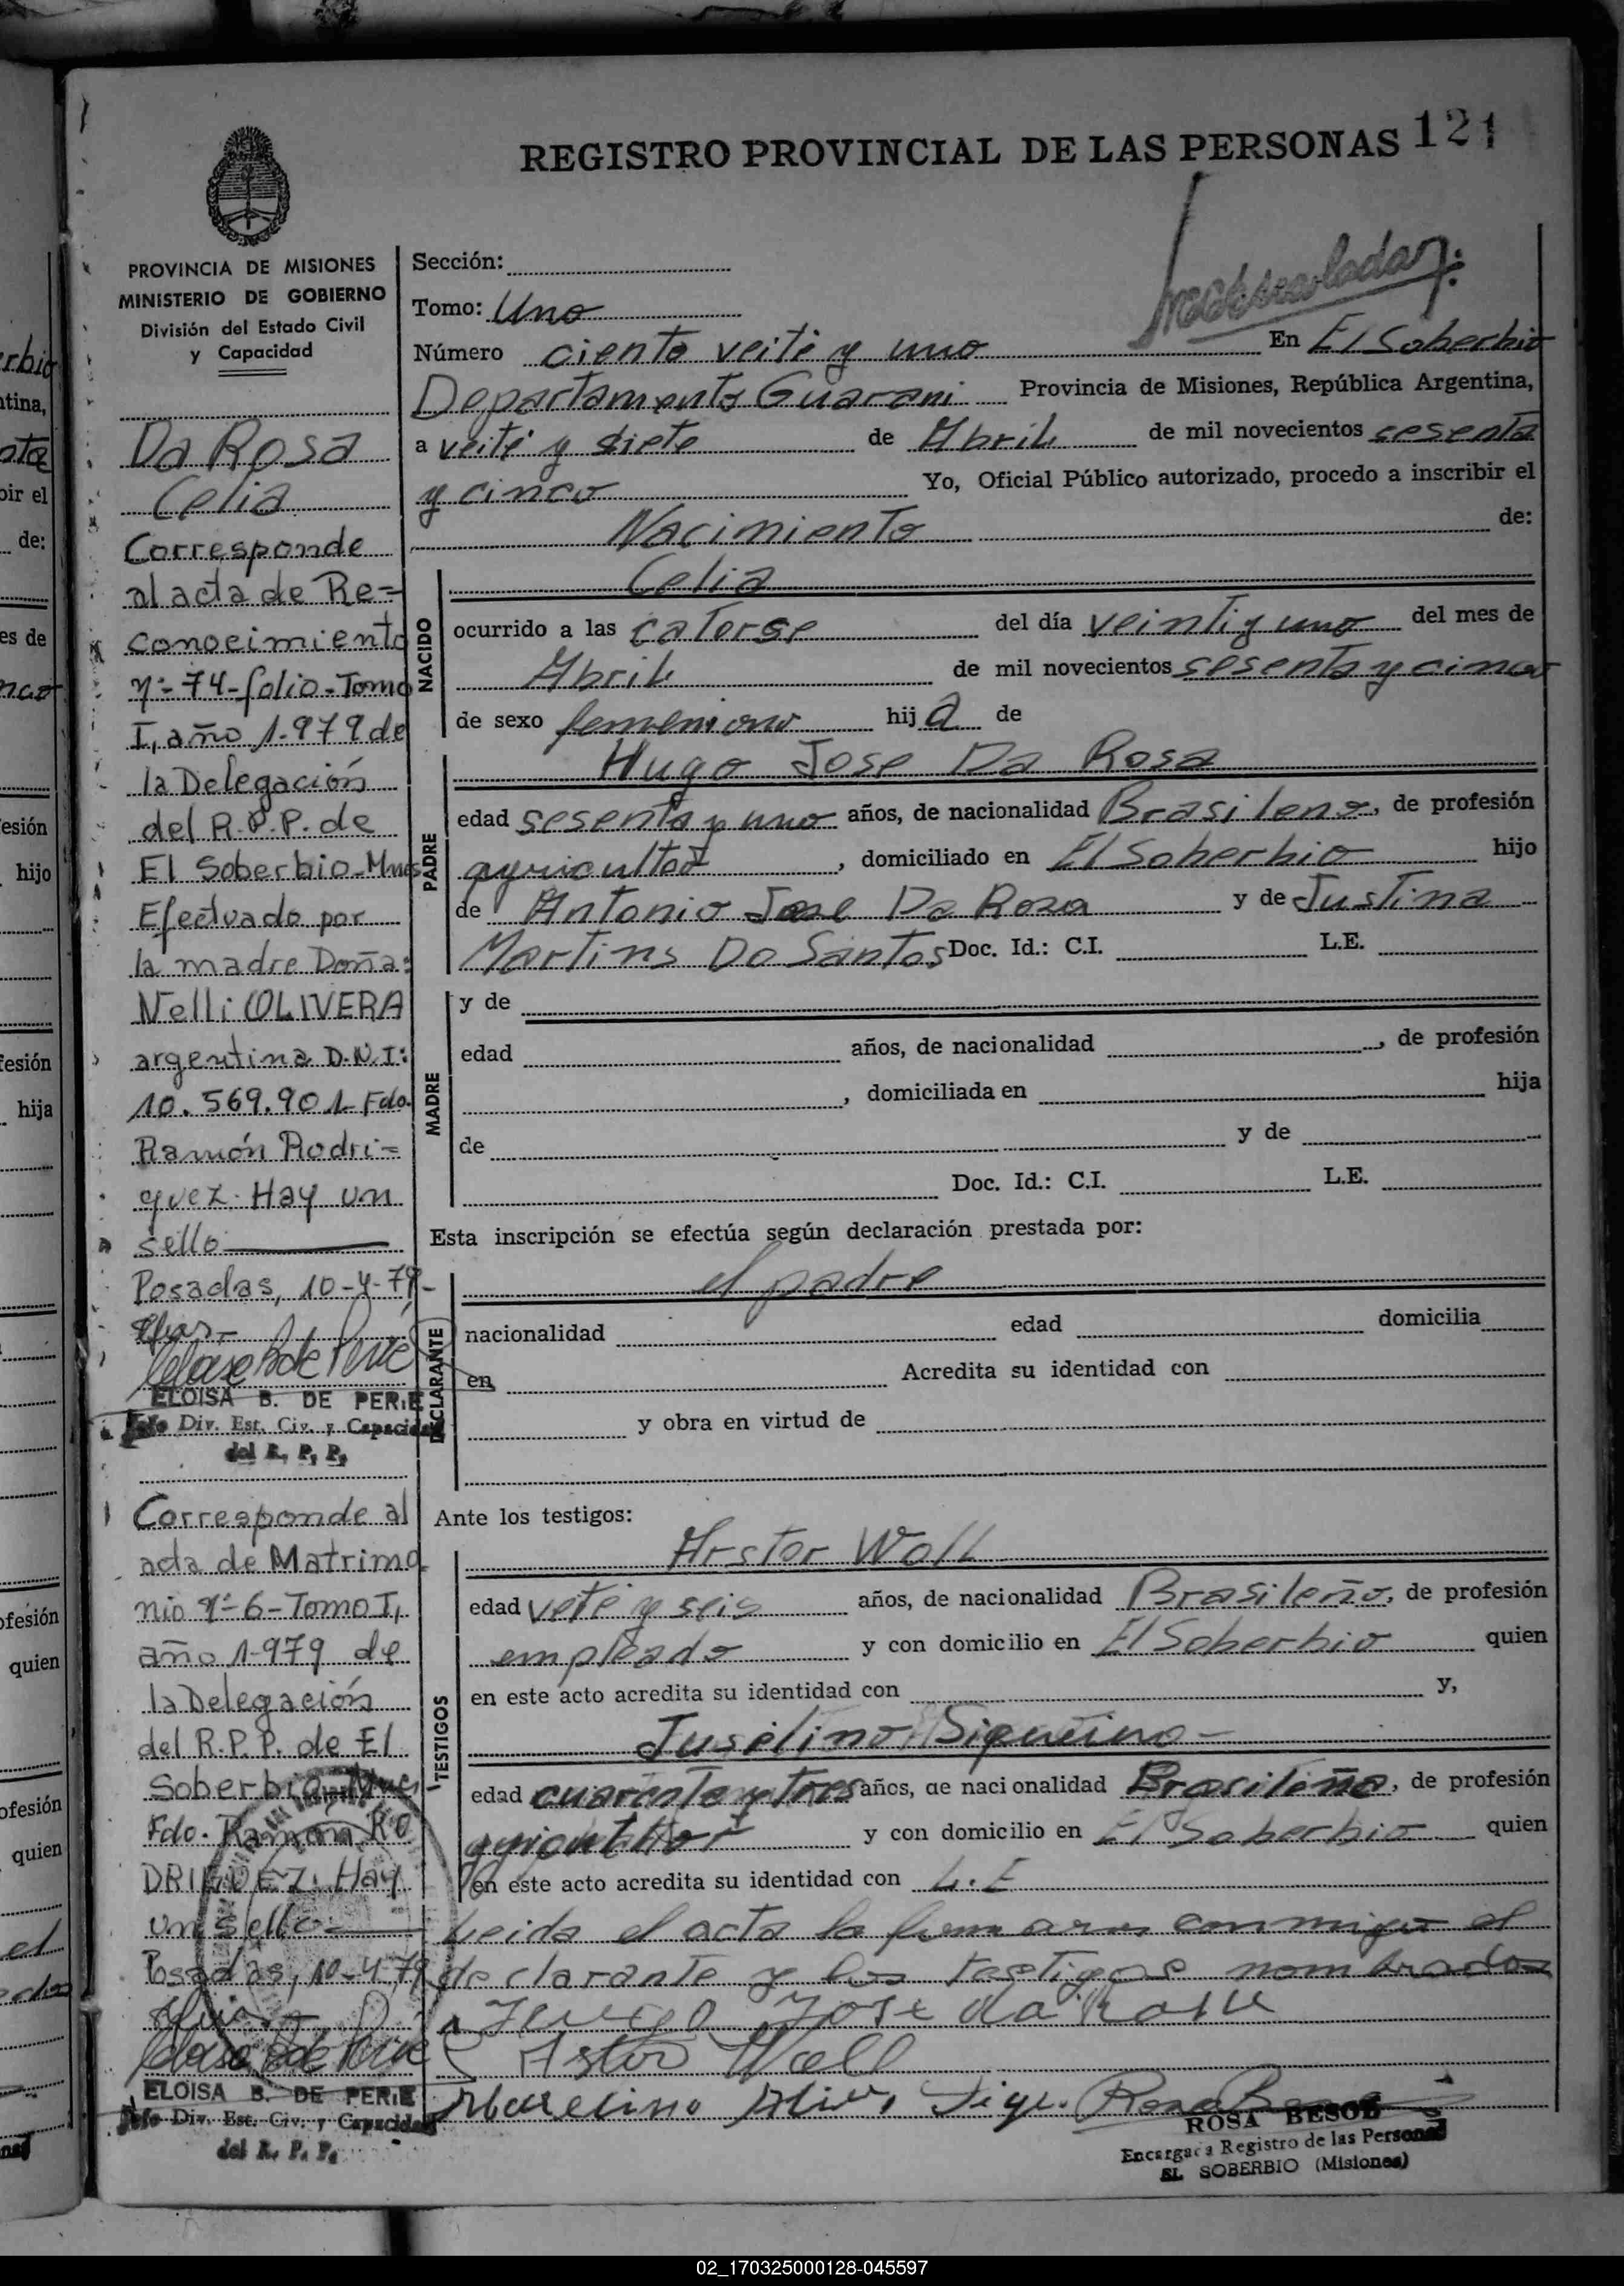 REGISTRO PROVINCIAL DE LAS PERSONAS 121
PROVINCIA DE MISIONES
MINISTERIO DE GOBIERNO
División del Estado Civil
y Capacidad
Da Rosa
Celia
Corresponde
al acta de Re=
conocimiento
nº- 74-folio-Tomo
I, año 1.979 de
la Delegación
del R.P.P. de
El Soberbio-Mnes
Efectuado por
la madre Doña:
Nelli OLIVERA
argentina D.N.I:
10.569.901- Fdo.
Ramón Rodri=
guez. Hay un
sello
Posadas, 10-4-79-
ELOISA B. DE PERIE
Jefe Div. Est. Civ. y Capacidad
del R. P. P.
Corresponde al
acta de Matrimo
nio nº- 6-Tomo I,
año 1.979 de
la Delegación
del R.P.P. de El
Soberbio, Mnes
Fdo. Ramon RO
DRIGUEZ. Hay
un sello
Posadas, 10-4-79
ELOISA B. DE PERIE
Jefe Div. Est. Civ. y Capacidad
del R. P. P.
Sección:
Tomo: Uno
Número ciento veite y uno En El Soberbio
Departamento Guarani Provincia de Misiones, República Argentina,
a veite y siete de Abril de mil novecientos sesenta
y cinco Yo, Oficial Público autorizado, procedo a inscribir el
Nacimiento de:
NACIDO
Celia
ocurrido a las catorse del día veinti y uno del mes de
Abril de mil novecientos sesenta y cinco
de sexo femenino hija de
PADRE
Hugo Jose Da Rosa
edad sesenta y uno años, de nacionalidad Brasileno, de profesión
agricultor, domiciliado en El Soberbio hijo
de Antonio Jose Da Rosa y de Justina
Martins Do Santos Doc. Id.: C.I. L.E.
MADRE
y de
edad años, de nacionalidad , de profesión
, domiciliada en hija
de y de
Doc. Id.: C.I. L.E.
Esta inscripción se efectúa según declaración prestada por:
DECLARANTE
el padre
nacionalidad edad domicilia
en Acredita su identidad con
y obra en virtud de
Ante los testigos:
TESTIGOS
Arstor Woll
edad vete y seis años, de nacionalidad Brasileño, de profesión
empleado y con domicilio en El Soberbio quien
en este acto acredita su identidad con y,
Juselino
edad cuarenta y tres años, de nacionalidad Brasileño, de profesión
agricultor y con domicilio en El Soberbio quien
en este acto acredita su identidad con L.E
Leida el acta la firmaron conmigo el
declarante y los testigos nombrados
Hugo Jose da Rosa
Astor Woll
ROSA BESOB
Encargada Registro de las Personas
EL SOBERBIO (Misiones)
02_170325000128-045597